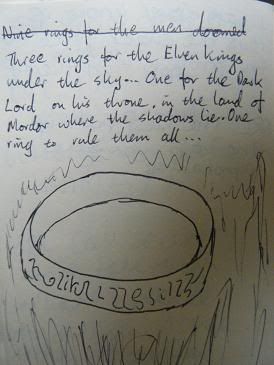 Nine rings for the men doomed
Three rings for the Elven Kings
under the sky... One for the Dark
Lord on his throne, in the land of
Mordor where the shadows lie. One
ring to rule them all...